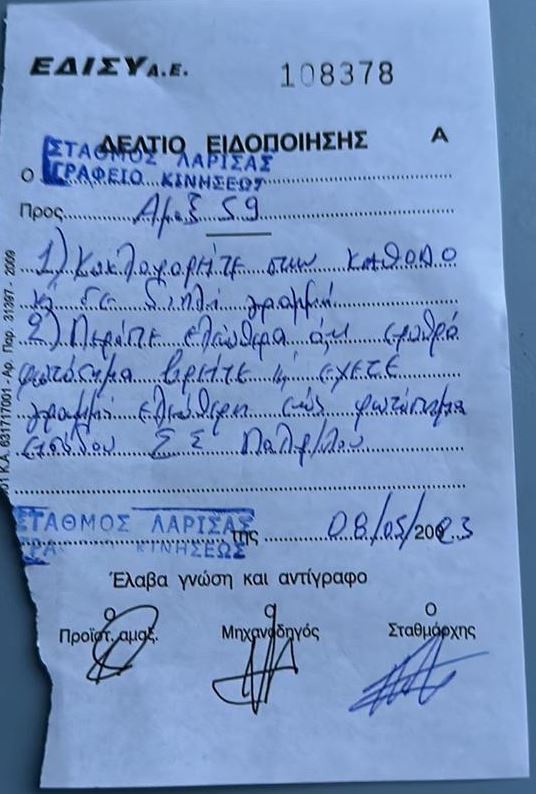 ΕΔΙΣΥ Α.Ε. 108378
ΔΕΛΤΙΟ ΕΙΔΟΠΟΙΗΣΗΣ Α
ΣΤΑΘΜΟΣ ΛΑΡΙΣΑΣ
Ο ΓΡΑΦΕΙΟ ΚΙΝΗΣΕΩΣ
Προς Αμαξ 59
1) Κυκλοφορήτε στην κάθοδο
κ σε διπλή γραμμή
2) Περάστε ελεύθερα ό,τι ερυθρό
φωτόσημα βρήτε κ έχετε
γραμμή ελεύθερη έως φωτόσημα
εισόδου Σ Σ Παλ/λου
ΣΤΑΘΜΟΣ ΛΑΡΙΣΑΣ
ΓΡΑ ΚΙΝΗΣΕΩΣ της 08/05/2023
Έλαβα γνώση και αντίγραφο
Ο Ο Ο
Προϊστ. αμαξ. Μηχανοδηγός Σταθμάρχης
Κ.Α. 631717001 - Αρ. Παρ. 31397 - 2009